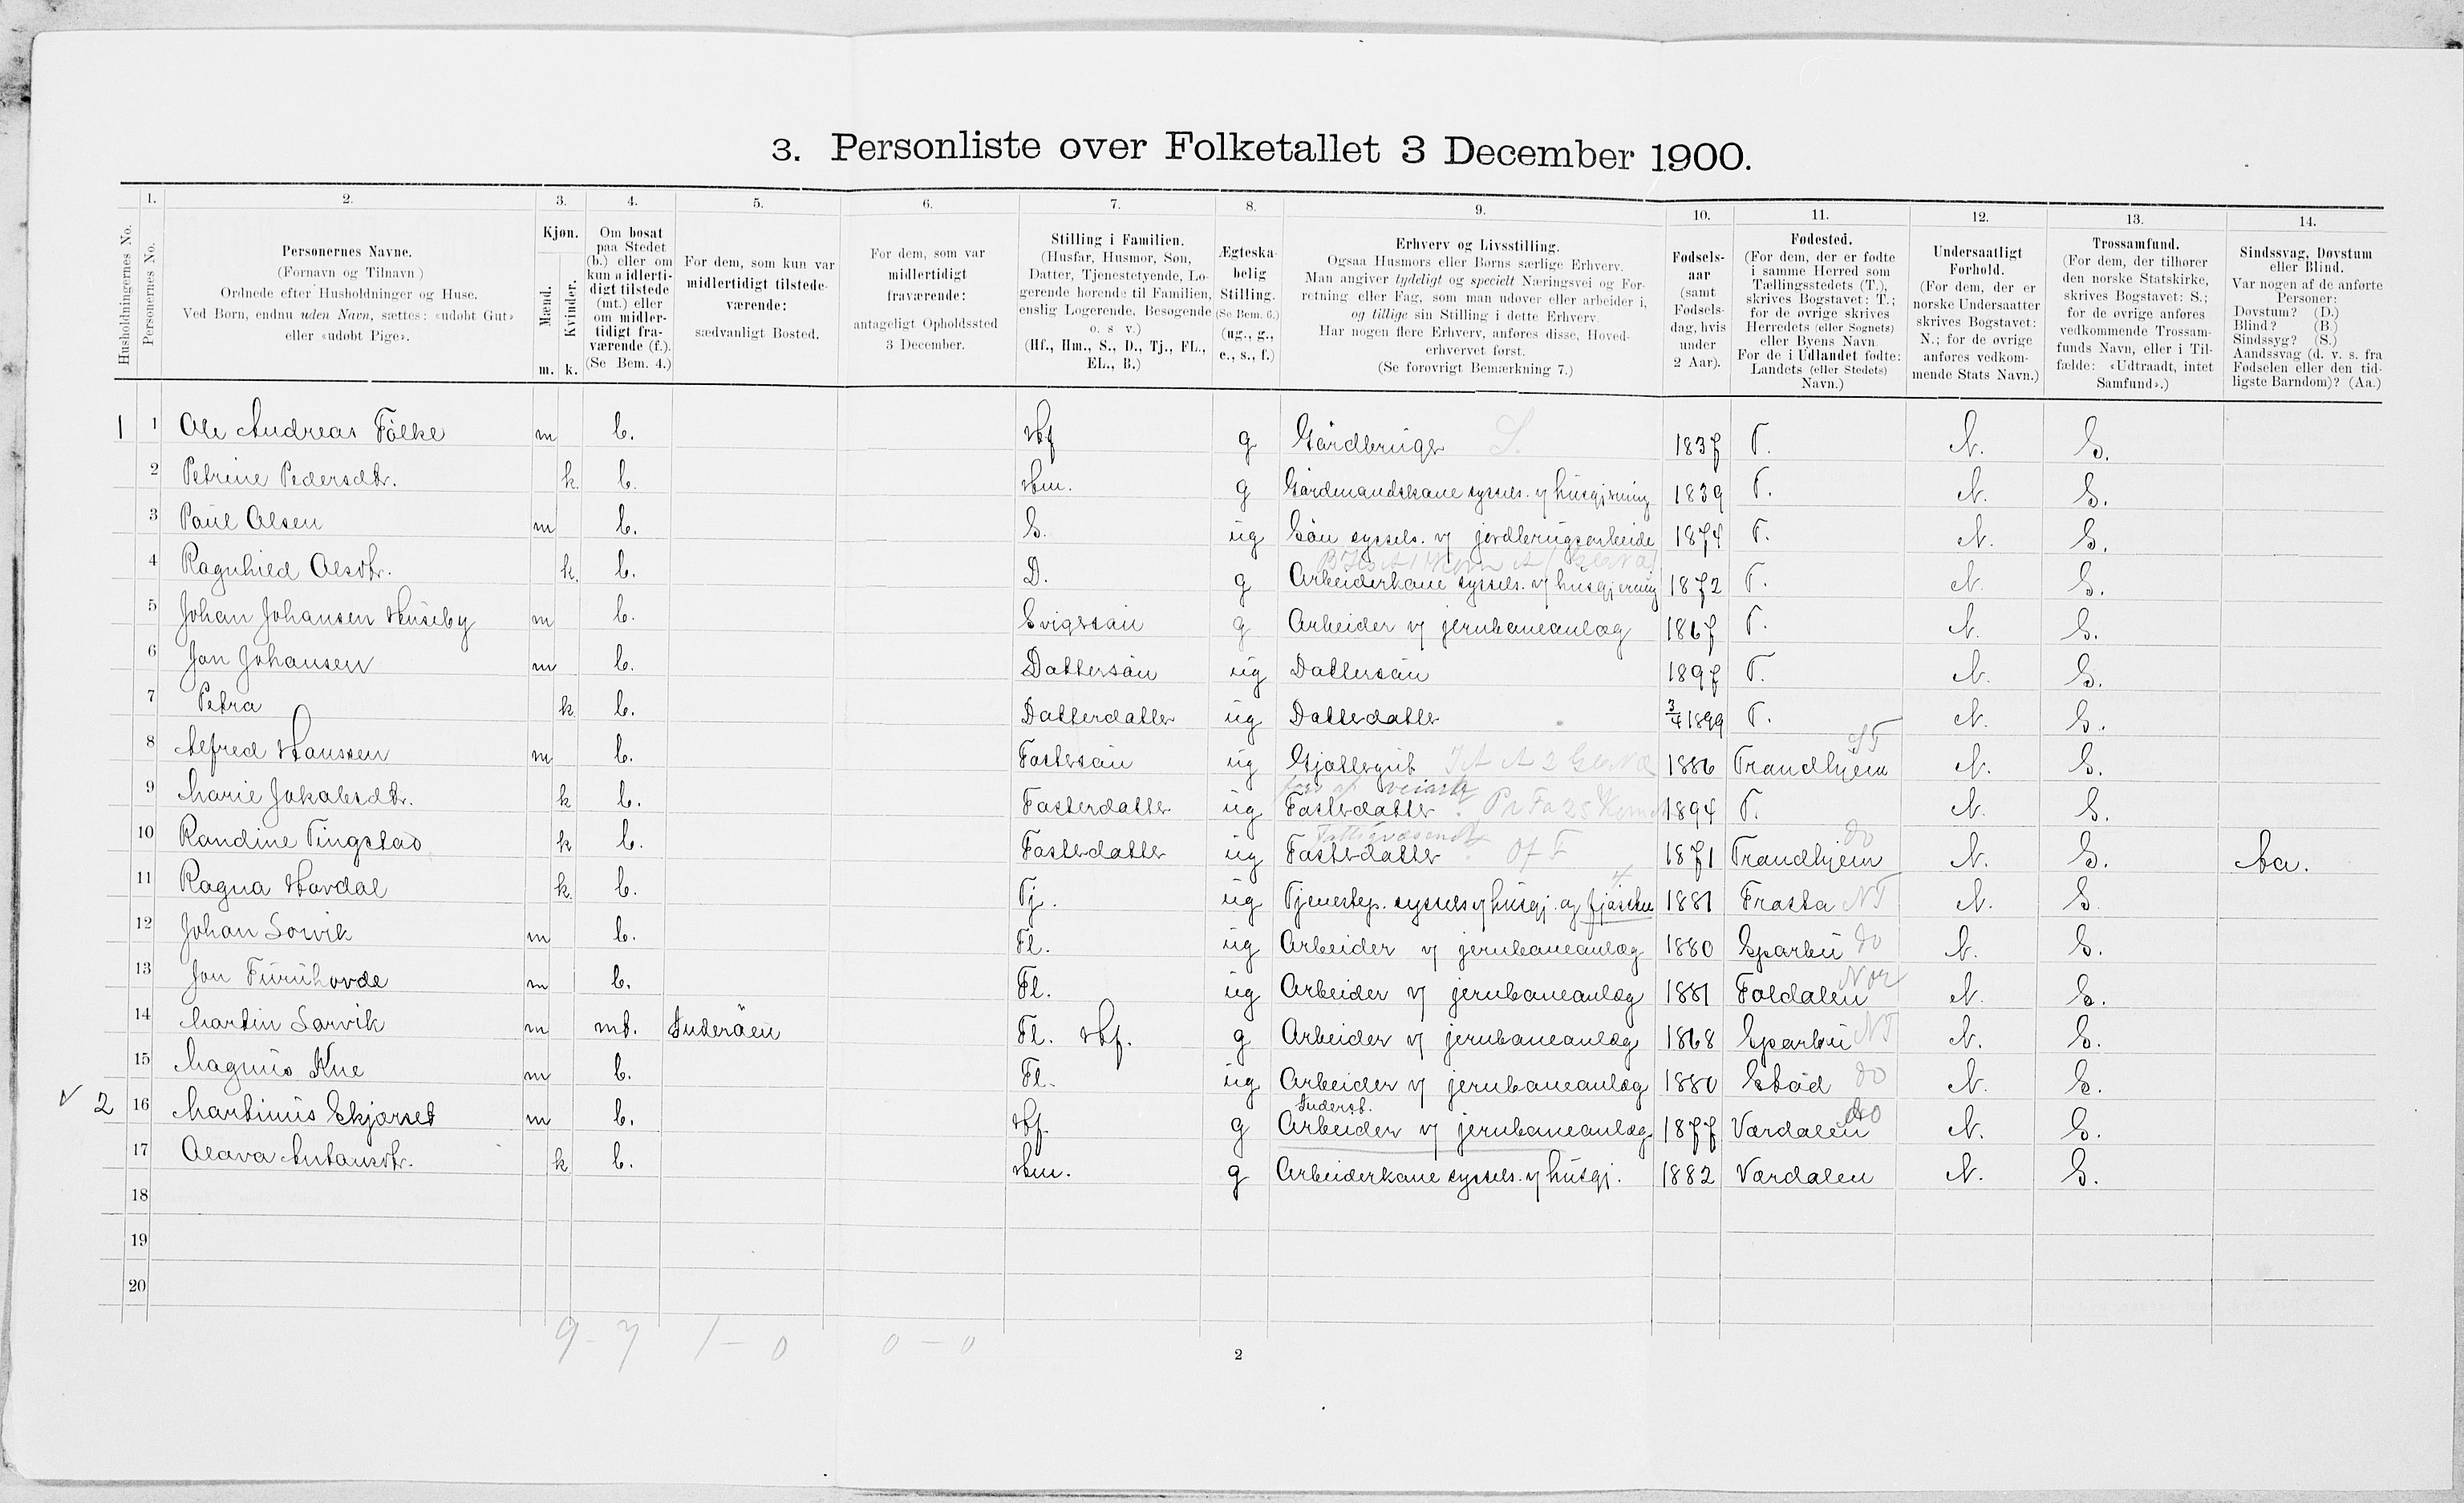 3. Personliste over Folketallet 3 December 1900.
Husholdningernes No.
1. Personernes No.
2. Personernes Navne. (Fornavn og Tilnavn) Ordnede efter Husholdninger og Huse. Ved Børn, endnu uden Navn, sættes: «udøbt Gut» eller «udøbt Pige».
3. Kjøn. Mænd. m. Kvinder. k.
4. Om bosat paa Stedet (b.) eller om kun midlertidigt tilstede (mt.) eller om midlertidigt fraværende (f.). (Se Bem. 4.)
5. For dem, som kun var midlertidigt tilstedeværende: sædvanligt Bosted.
6. For dem, som var midlertidigt fraværende: antageligt Opholdssted 3 December.
7. Stilling i Familien. (Husfar, Husmor, Søn, Datter, Tjenestetyende, Logerende hørende til Familien, enslig Logerende, Besøgende o. s. v.) (Hf., Hm., S., D., Tj., FL., EL., B.)
8. Ægteskabelig Stilling. (Se Bem. 6.) (ug., g., e., s., f.)
9. Erhverv og Livsstilling. Ogsaa Husmors eller Børns særlige Erhverv. Man angiver tydeligt og specielt Næringsvei og Forretning eller Fag, som man udøver eller arbeider i, og tillige sin Stilling i dette Erhverv. Har nogen flere Erhverv, anføres disse, Hovederhvervet først. (Se forøvrigt Bemærkning 7.)
10. Fødselsaar (samt Fødselsdag, hvis under 2 Aar).
11. Fødested. (For dem, der er fødte i samme Herred som Tællingsstedets (T.), skrives Bogstavet: T.; for de øvrige skrives Herredets (eller Sognets) eller Byens Navn. For de i Udlandet fødte: Landets (eller Stedets) Navn.)
12. Undersaatligt Forhold. (For dem, der er norske Undersaatter skrives Bogstavet: N.; for de øvrige anføres vedkommende Stats Navn.)
13. Trossamfund. (For dem, der tilhører den norske Statskirke, skrives Bogstavet: S.; for de øvrige anføres vedkommende Trossamfunds Navn, eller i Tilfælde: «Udtraadt, intet Samfund».)
14. Sindssvag, Døvstum eller Blind. Var nogen af de anførte Personer: Døvstum? (D.) Blind? (B.) Sindssyg? (S.) Aandssvag (d. v. s. fra Fødselen eller den tidligste Barndom)? (Aa.)
1 1 Ole Andreas Folke m b. Hf g Gårdbruger S. 1837 T. N. S.
2 Petrine Pedersdtr. k. b. Hm. g Gårdmandskone syssels. v/ husgjerning 1839 T. N. S.
3 Paul Olsen m b. S. ug Søn syssels. v/ jordbrugsarbeide 1874 T. N. S.
4 Ragnhild Olsdtr. k. b. D. g Arbeiderkone syssels. v/ husgjerning 1872 T. N. S.
5 Johan Johansen Huseby m b. Svigersøn g Arbeider v/ jernbaneanlæg 1867 T. N. S.
6 Jon Johansen m b. Dattersøn ug Dattersøn 1897 T. N. S.
7 Petra k b. Datterdatter ug Datterdatter 3/4 1899 T. N. S.
8 Alfred Hanssen m b. Fostersøn ug Gjættergut 1886 Trondhjem ST N. S.
9 Marie Jakobsdtr. k b. Fosterdatter ug Fosterdatter 1894 T. N. S.
10 Randine Tingstad k b. Fosterdatter ug Fosterdatter Of F 1871 Trondhjem do N. S. Aa.
11 Ragna Hovdal k. b. Tj. ug Tjenestep. syssels v/ husgj. og fjøsstel 1881 Frosta NT N. S.
12 Johan Sorvik m b. Fl. ug Arbeider v/ jernbaneanlæg 1880 Sparbu do N. S.
13 Jon Furuhovde m b. Fl. ug Arbeider v/ jernbaneanlæg 1881 Foldalen N. S.
14 Martin Sorvik m mt. Inderøen Fl. Hf. g Arbeider v/ jernbaneanlæg 1868 Sparbu NT N. S.
15 Magnus Kne m b. Fl. ug Arbeider v/ jernbaneanlæg 1880 Stod do N. S.
Inderst.
2 16 Martinus Skjørset m b. Hf. g Arbeider v/ jernbaneanlæg 1877 Værdalen do N. S.
17 Olava Antonsdtr. k b. Hm. g Arbeiderkone syssels. v/ husgj. 1882 Værdalen N. S.
18
19
20
9 - 7 1 - 0 0 - 0
2